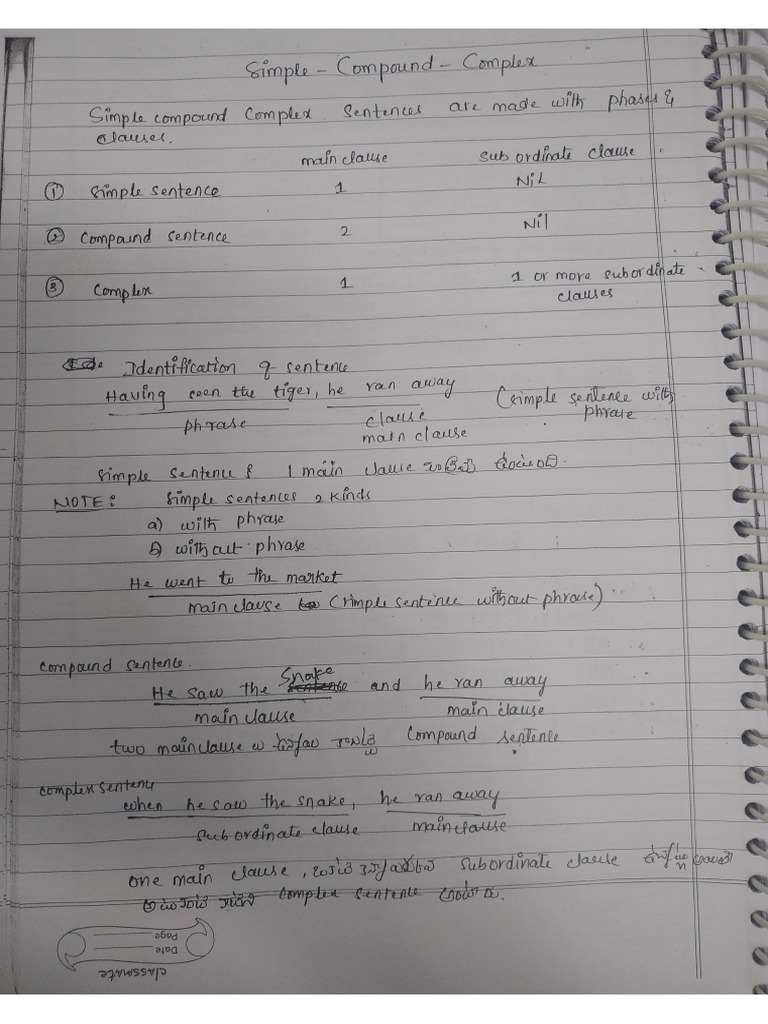 Simple - Compound - Complex
Simple compound complex sentences are made with phases &
clauses.
main clause sub ordinate clause
① Simple sentence 1 NiL
② Compound sentence 2 Nil
③ Complex 1 1 or more subordinate
clauses
Identification of sentence
Having seen the tiger, he ran away (simple sentence with
phrase clause phrase
main clause
simple sentence 1 main clause
NOTE: Simple sentences 2 kinds
a) with phrase
b) without phrase
He went to the market
main clause (simple sentence without phrase)
compound sentence.
He saw the snake and he ran away
main clause main clause
two main clause compound sentence
complex sentence
when he saw the snake, he ran away
subordinate clause main clause
one main clause, subordinate clause
complex sentence
classmate
Date
Page